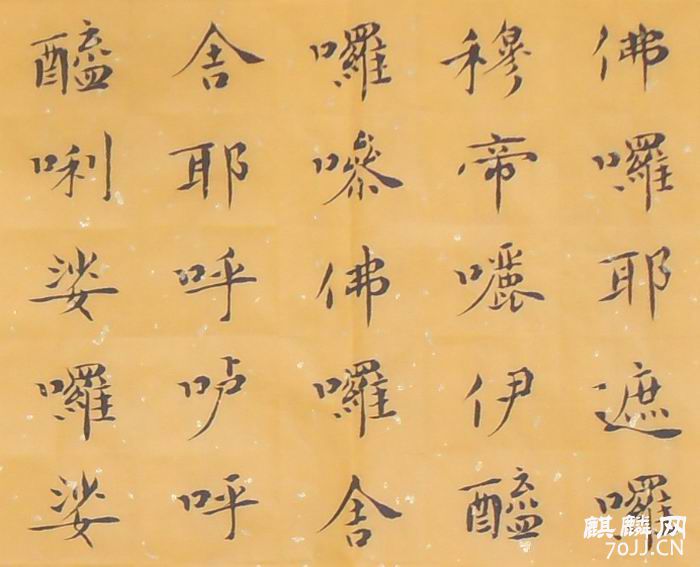 佛囉耶遮囉
穆帝囇伊醯
囉嘇佛囉舍
舍耶呼呼
醯唎娑囉娑
麒麟网
70JJ.CN